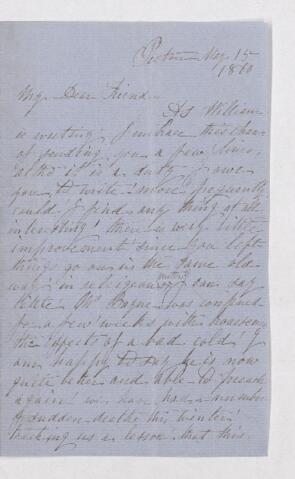 Pictou May 15
1860
My Dear Friend
As William
is writing I embrace the chance
of sending you a few lines,
altho it is a duty I owe
you to write more frequently
could I find any thing at all
interesting there is very little
improvement since you left
things go on in the same old
way in religious matters I can say
little Mr Bayne was confined
for a few weeks with hoarseness
the effects of a bad cold I
am happy to say he is now
quite better and able to preach
again we have had a number
of sudden deaths this winter
teaching us a lesson that this